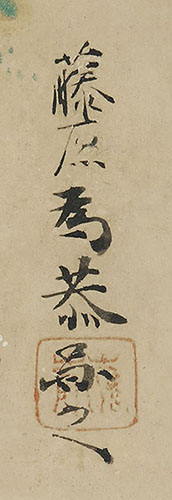 藤原為恭